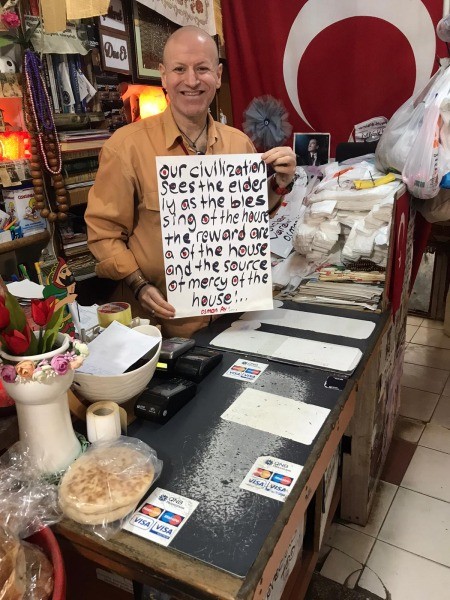 Dua Et
our civilization
sees the elder
ly as the bles
sing of the house
the reward are
a of the house
and the source
of mercy of the
house!...
osman
VISA
QNB
VISA
QNB
VISA VISA